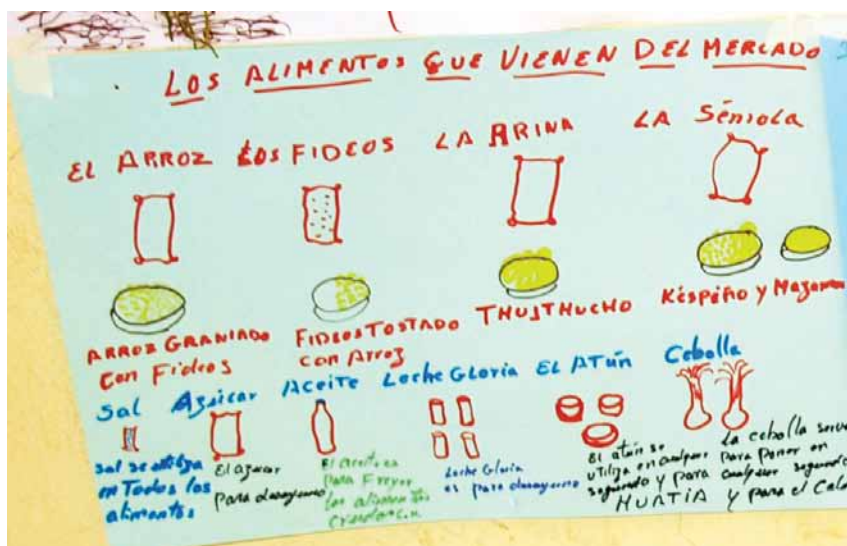 LOS ALIMENTOS QUE VIENEN DEL MERCADO
EL ARROZ LOS FIDEOS LA ARINA LA Sémola
ARROZ GRANIADO
con Fideos
FIDEOS TOSTADO
con Arroz
THUJTHUCHO
Késpiño y
Sal Azúcar Aceite Leche Gloria EL ATÚN Cebolla
Sal se utiliza
en Todos los
alimentos
El azucar
para desayuno
El aceite es
para Freyer
los alimentos
Leche Gloria
es para desayuno
El atún se
utiliza en cualquier
segundo y para
HUATIA
La cebolla
para poner en
cualquier segundo
y para el